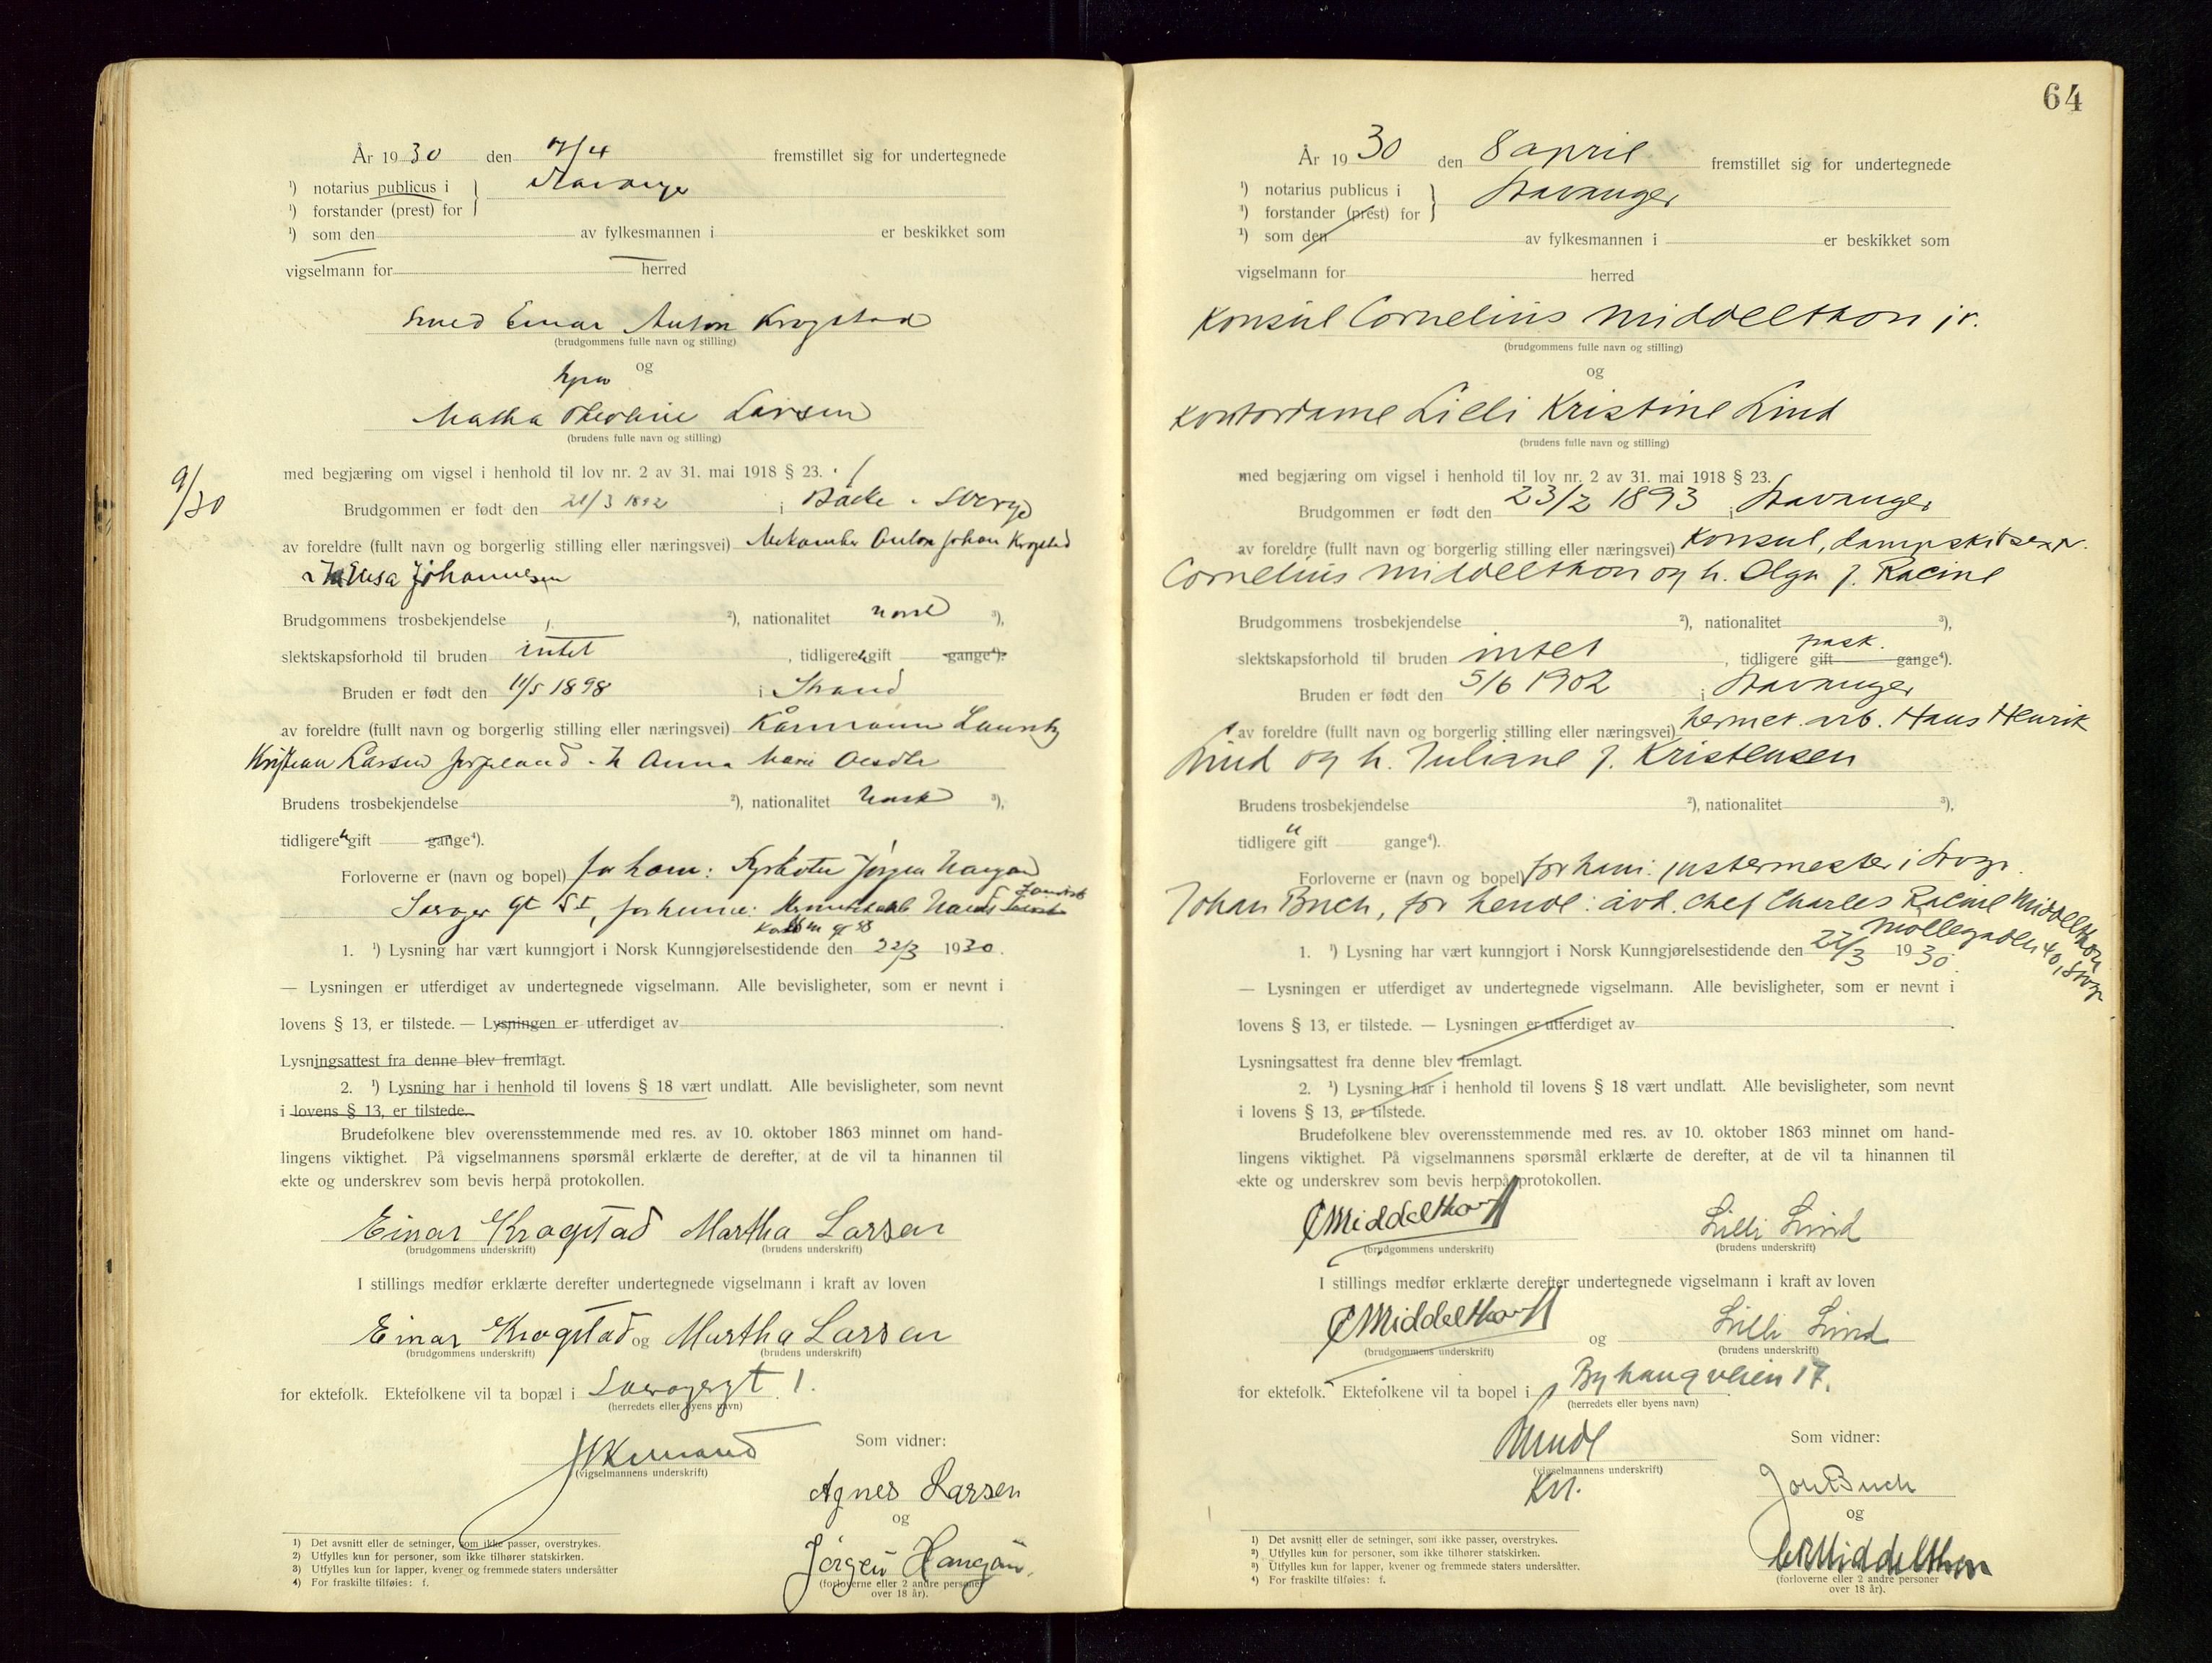 År 1930 den 7/4 fremstillet sig for undertegnede
¹) notarius publicus i
¹) forstander (prest) for
Stavanger
¹) som den av fylkesmannen i er beskikket som
vigselmann for herred
Smed Einar Anton Krogstad
(brudgommens fulle navn og stilling)
og
Martha Larsen
(brudens fulle navn og stilling)
med begjæring om vigsel i henhold til lov nr. 2 av 31. mai 1918 § 23.
9/30
Brudgommen er født den 21/3 1892 i Bäcke
av foreldre (fullt navn og borgerlig stilling eller næringsvei) Anton Johan Krogstad
Johannesen
Brudgommens trosbekjendelse ²), nationalitet norsk ³),
slektskapsforhold til bruden intet, tidligere u gift gange⁴).
Bruden er født den 11/5 1898 i Strand
av foreldre (fullt navn og borgerlig stilling eller næringsvei) Lauritz
Kristian Larsen Jørpeland Anna Marie
Brudens trosbekjendelse ²), nationalitet norsk ³),
tidligere u gift gange⁴).
Forloverne er (navn og bopel) for ham: Jørgen
gt for henne:
1. ¹) Lysning har vært kunngjort i Norsk Kunngjørelsestidende den 22/3 1930.
— Lysningen er utferdiget av undertegnede vigselmann. Alle bevisligheter, som er nevnt i
lovens § 13, er tilstede. — Lysningen er utferdiget av .
Lysningsattest fra denne blev fremlagt.
2. ¹) Lysning har i henhold til lovens § 18 vært undlatt. Alle bevisligheter, som nevnt
i lovens § 13, er tilstede.
Brudefolkene blev overensstemmende med res. av 10. oktober 1863 minnet om hand-
lingens viktighet. På vigselmannens spørsmål erklærte de derefter, at de vil ta hinannen til
ekte og underskrev som bevis herpå protokollen.
Einar Krogstad Martha Larsen
(brudgommens underskrift) (brudens underskrift)
I stillings medfør erklærte derefter undertegnede vigselmann i kraft av loven
Einar Krogstad og Martha Larsen
(brudgommens underskrift) (brudens underskrift)
for ektefolk. Ektefolkene vil ta bopæl i 1.
(herredets eller byens navn)
(vigselmannens underskrift)
Som vidner:
Agnes Larsen
og
Jörgen
(forloverne eller 2 andre personer
over 18 år).
1) Det avsnitt eller de setninger, som ikke passer, overstrykes.
2) Utfylles kun for personer, som ikke tilhører statskirken.
3) Utfylles kun for lapper, kvener og fremmede staters undersåtter
4) For fraskilte tilføies: f.
64
År 1930 den 8 april fremstillet sig for undertegnede
¹) notarius publicus i
¹) forstander (prest) for
Stavanger
¹) som den av fylkesmannen i er beskikket som
vigselmann for herred
Konsul Cornelius Middelthon jr.
(brudgommens fulle navn og stilling)
og
Kontordame Lilli Kristine Lind
(brudens fulle navn og stilling)
med begjæring om vigsel i henhold til lov nr. 2 av 31. mai 1918 § 23.
Brudgommen er født den 23/2 1893 i Stavanger
av foreldre (fullt navn og borgerlig stilling eller næringsvei) Konsul, dampskibsexp.
Cornelius Middelthon og h. Olga f. Racine
Brudgommens trosbekjendelse ²), nationalitet ³),
slektskapsforhold til bruden intet, tidligere gift gange⁴). frask.
Bruden er født den 5/6 1902 i Stavanger
av foreldre (fullt navn og borgerlig stilling eller næringsvei) hermet. arb. Hans Henrik
Lind og h. Juliane f. Kristensen
Brudens trosbekjendelse ²), nationalitet ³),
tidligere u gift gange⁴).
Forloverne er (navn og bopel) for ham: i Svgr.
Johan Buch, for hende: avd. chef Charles Racine Middelthon
Möllegaden 40, Svgr
1. ¹) Lysning har vært kunngjort i Norsk Kunngjørelsestidende den 22/3 1930.
— Lysningen er utferdiget av undertegnede vigselmann. Alle bevisligheter, som er nevnt i
lovens § 13, er tilstede. — Lysningen er utferdiget av .
Lysningsattest fra denne blev fremlagt.
2. ¹) Lysning har i henhold til lovens § 18 vært undlatt. Alle bevisligheter, som nevnt
i lovens § 13, er tilstede.
Brudefolkene blev overensstemmende med res. av 10. oktober 1863 minnet om hand-
lingens viktighet. På vigselmannens spørsmål erklærte de derefter, at de vil ta hinannen til
ekte og underskrev som bevis herpå protokollen.
C Middelthon Lilli Lind
(brudgommens underskrift) (brudens underskrift)
I stillings medfør erklærte derefter undertegnede vigselmann i kraft av loven
C Middelthon og Lilli Lind
(brudgommens underskrift) (brudens underskrift)
for ektefolk. Ektefolkene vil ta bopel i Byhaugveien 17.
(herredets eller byens navn)
(vigselmannens underskrift)
Som vidner:
Joh Buch
og
C R Middelthon
(forloverne eller 2 andre personer
over 18 år).
1) Det avsnitt eller de setninger, som ikke passer, overstrykes.
²) Utfylles kun for personer, som ikke tilhører statskirken.
³) Utfylles kun for lapper, kvener og fremmede staters undersåtter.
⁴) For fraskilte tilføies: f.